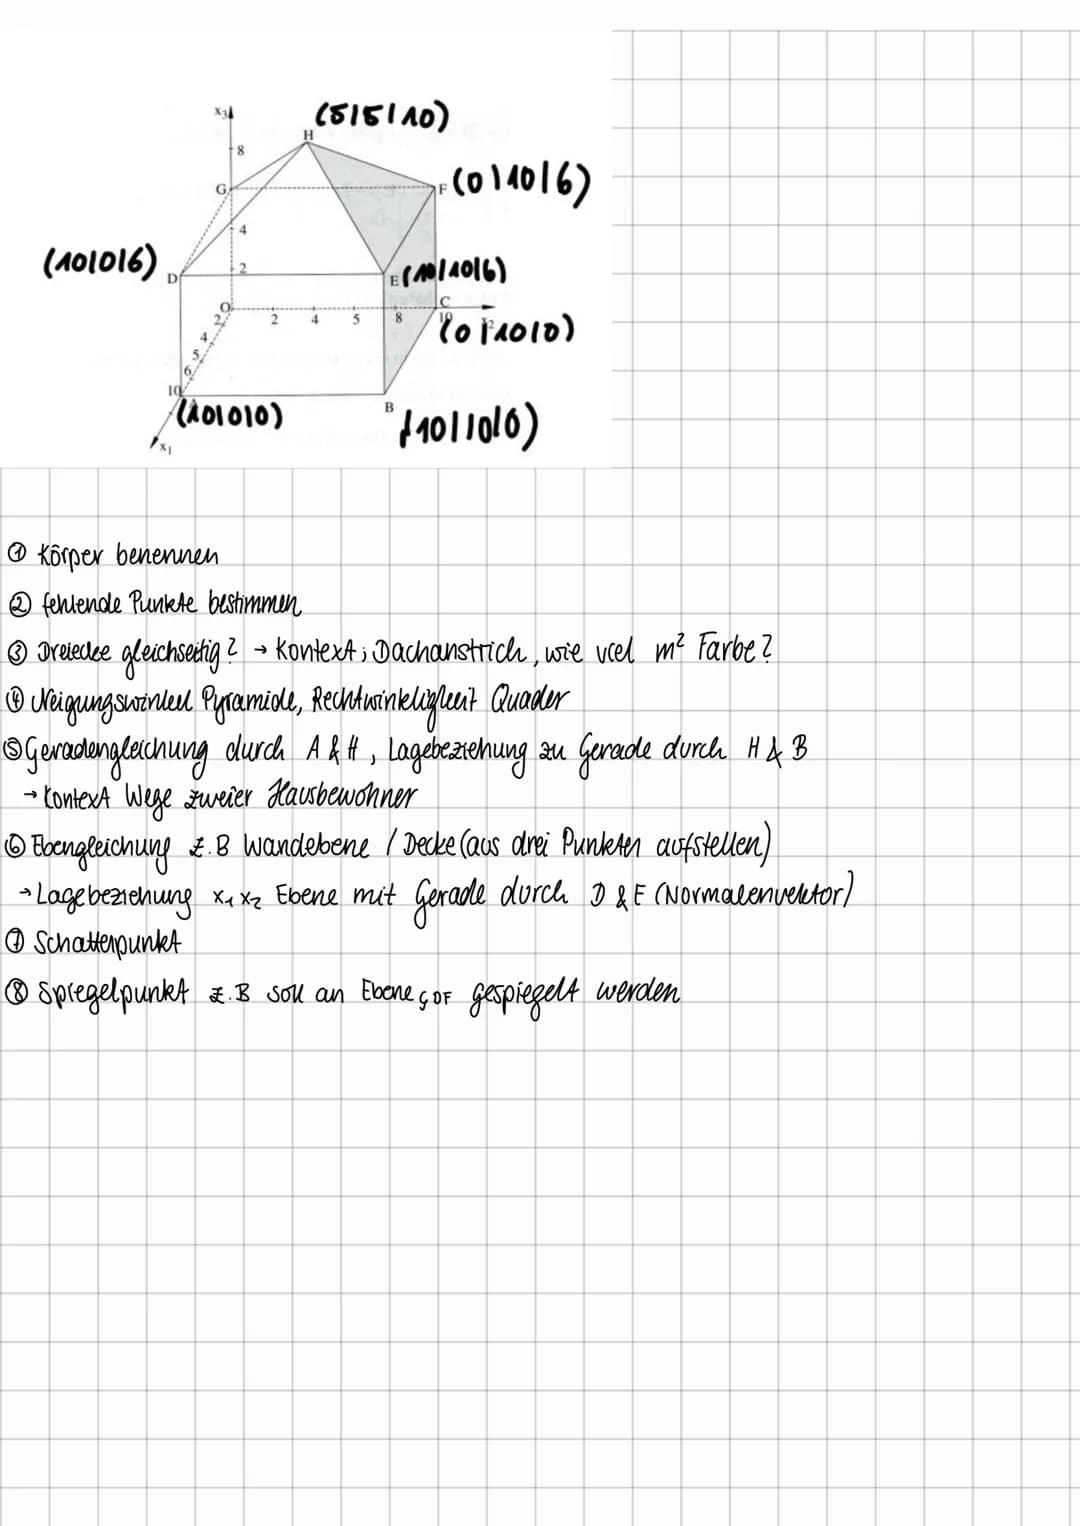 x₃
(5|5|10)
H
8
G
F (0|10|6)
4
(10|0|6)
D
2
E (10|10|6)
O
C
2 4 5 8 10 x₂
(0|10|0)
2
4
5
6
10
(10|0|0)
B
(10|10|0)
x₁
① Körper benennen
② fehlende Punkte bestimmen
③ Dreiecke gleichseitig? → Kontext; Dachanstrich, wie viel m² Farbe?
④ Neigungswinkel Pyramide, Rechtwinkligkeit Quader
⑤ Geradengleichung durch A & H, Lagebeziehung zu Gerade durch H & B
→ Kontext Wege zweier Hausbewohner
⑥ Ebengleichung z.B Wandebene / Decke (aus drei Punkten aufstellen)
→ Lagebeziehung x₁ x₂ Ebene mit Gerade durch D & E (Normalenvektor)
⑦ Schattenpunkt
⑧ Spiegelpunkt z.B soll an Ebene GDF gespiegelt werden